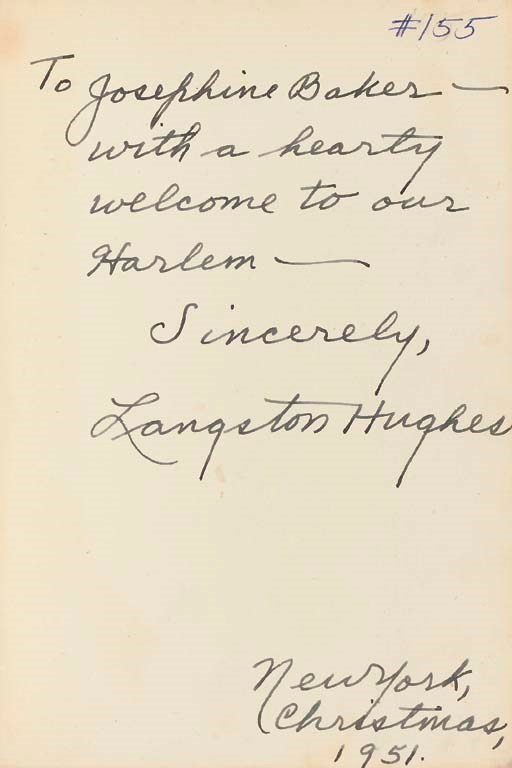 #155
To Josephine Baker —
with a hearty
welcome to our
Harlem —
Sincerely,
Langston Hughes
New York,
Christmas,
1951.